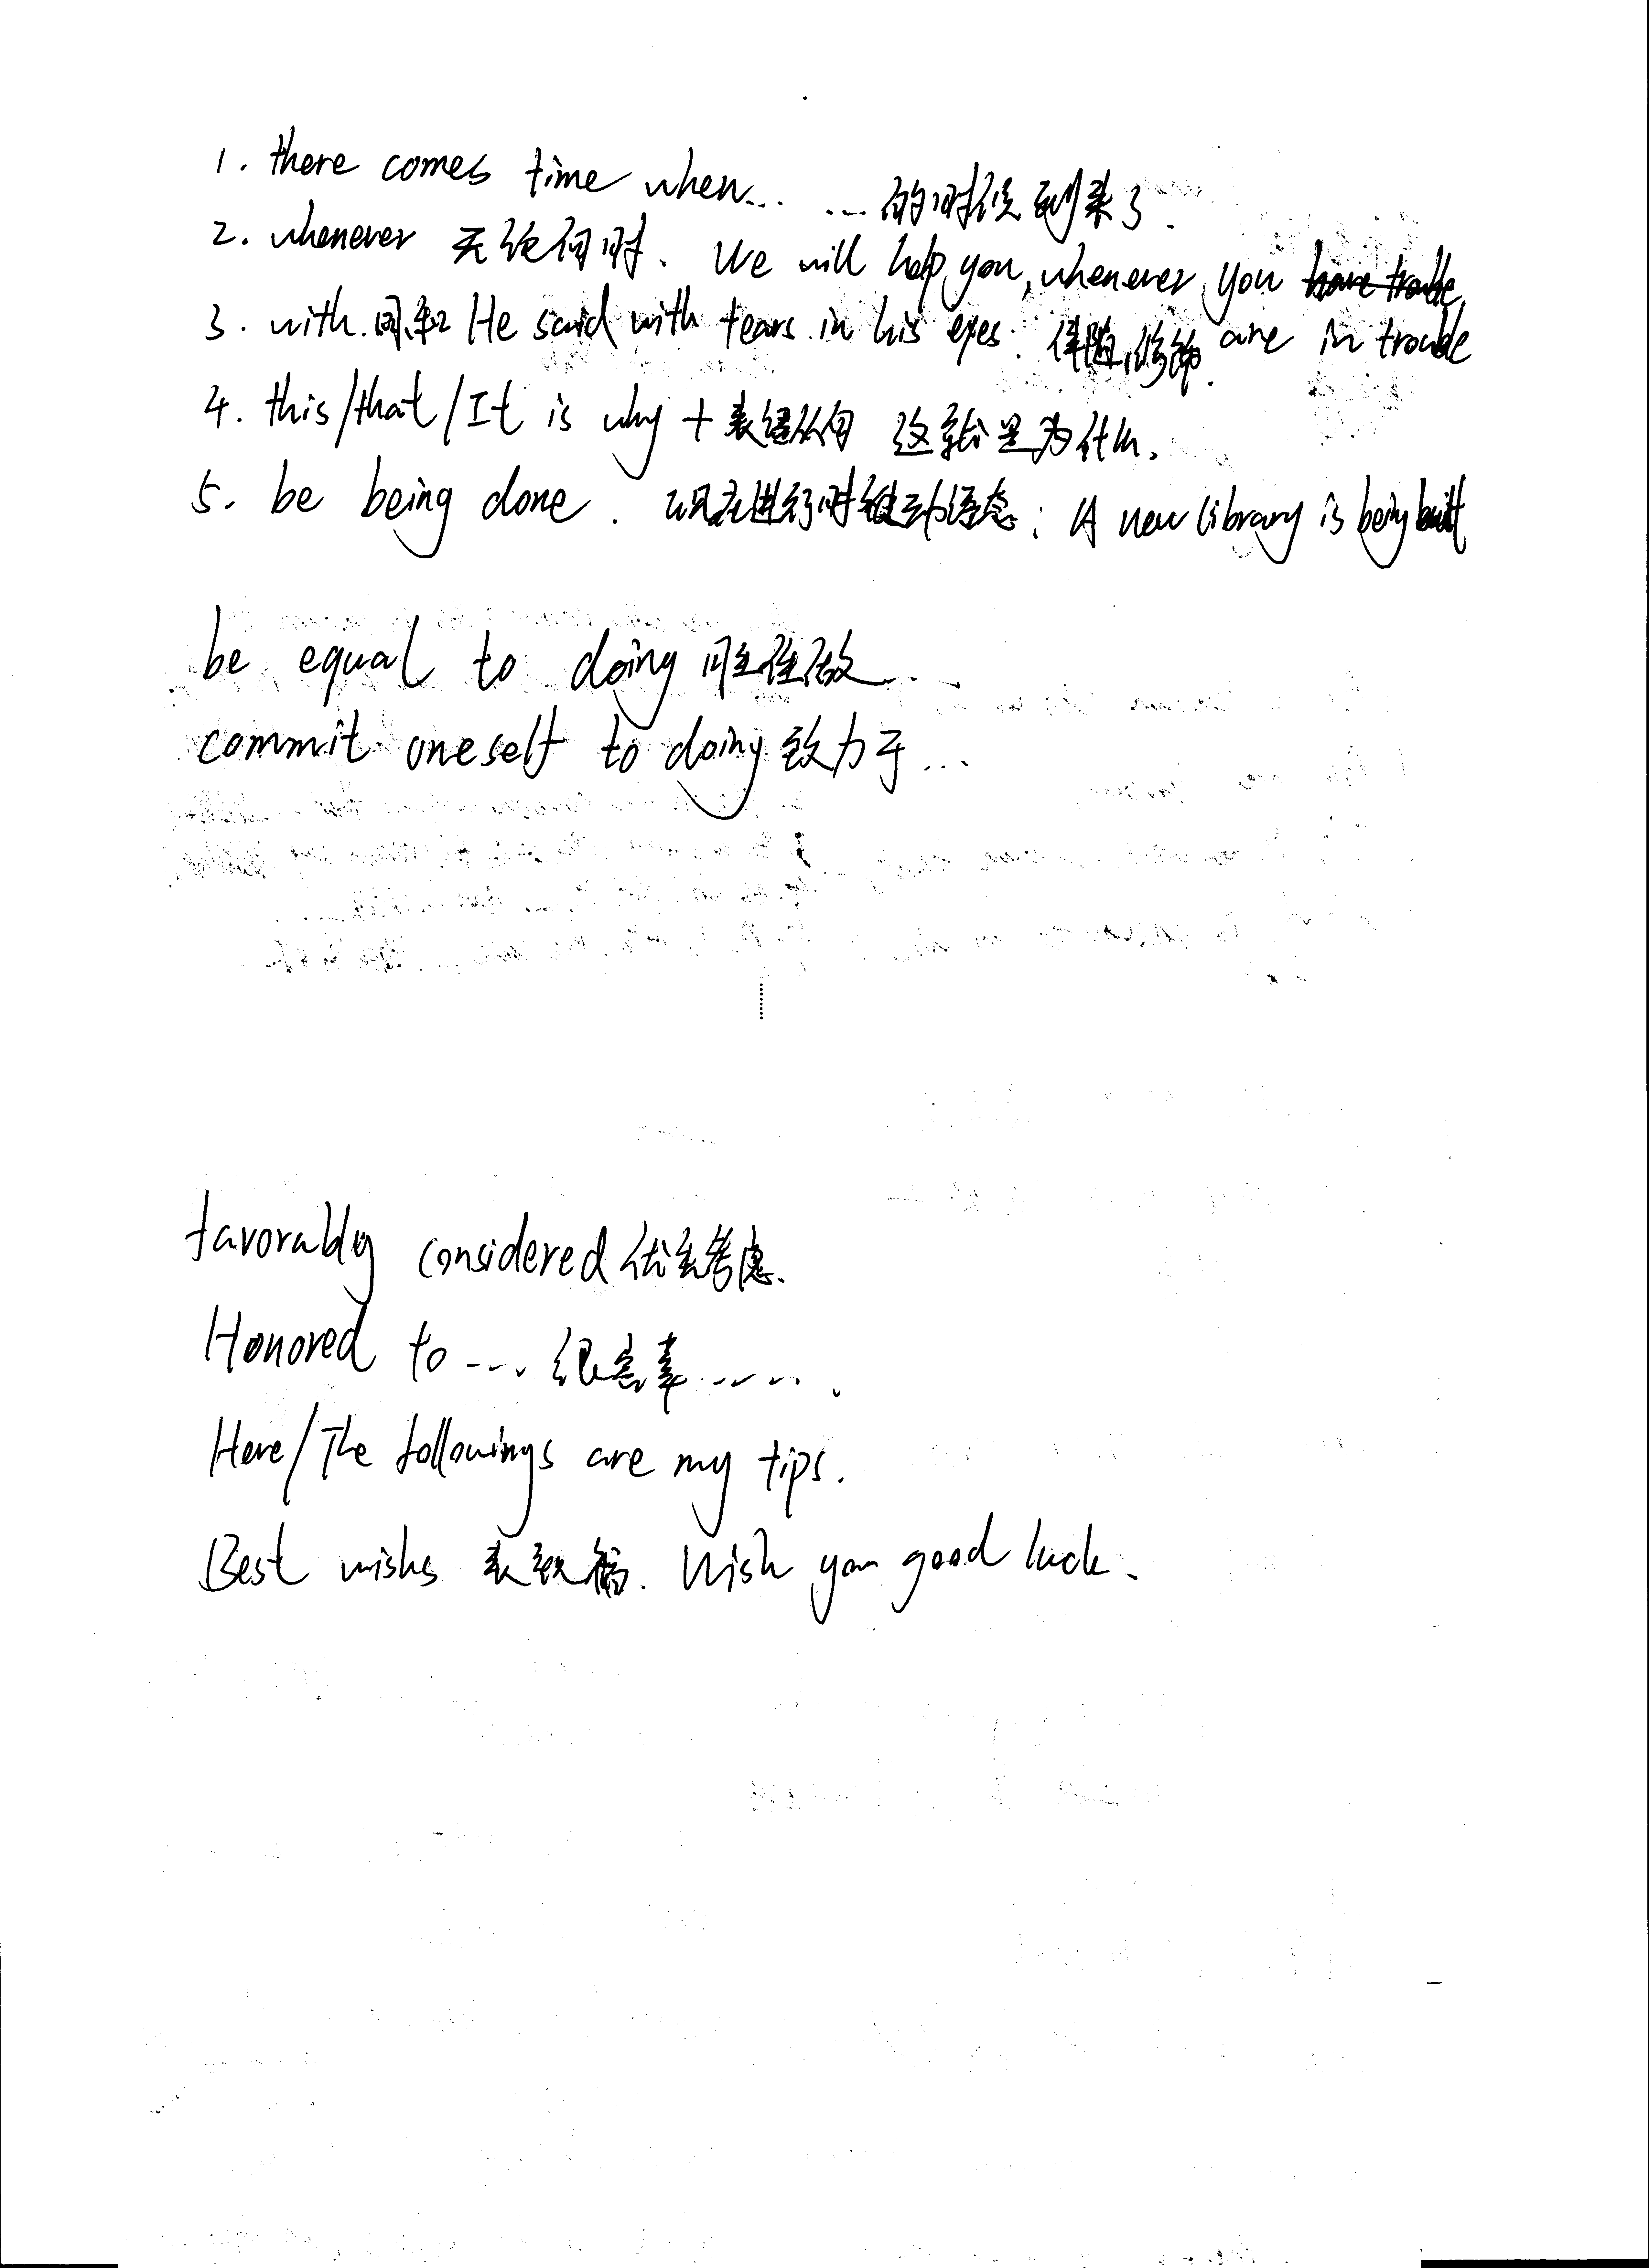 1. there comes time when... ...的时候到来了.
2. whenever 无论何时. We will help you, whenever you
3. with. 同,和 He said with tears in his eyes. 伴随,修饰 are in trouble
4. this/that/It is why + 表语从句 这就是为什么.
5. be being done. 现在进行时被动语态: A new library is being built
be equal to doing 同等程度...
commit oneself to doing 致力于...
favorably considered 优先考虑.
Honored to .... 很荣幸.....
Here/The followings are my tips.
Best wishs 表祝福. Wish you good luck.